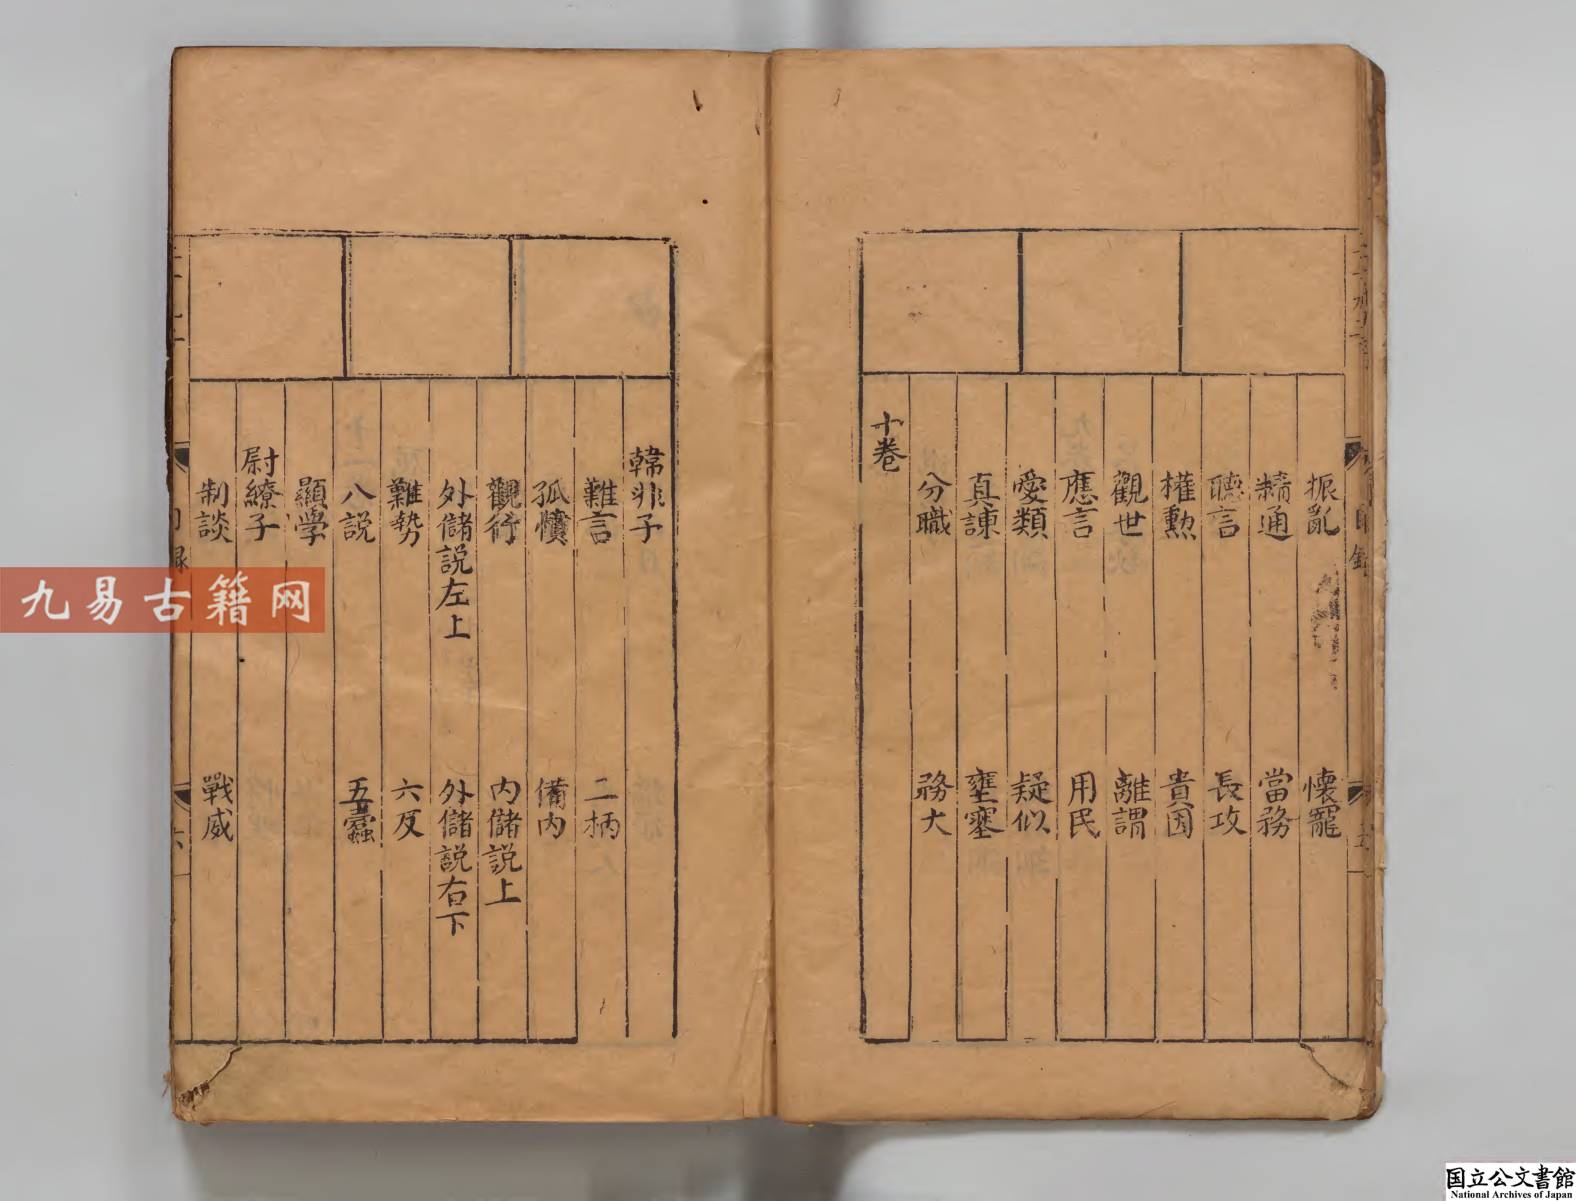 振亂 懷寵
精通 當務
聽言 長攻
權勲 貴因
觀世 離謂
應言 用民
愛類 疑似
真諌 壅塞
分職 務大
十卷
韓非子
難言 二柄
孤憤 備内
觀行 内儲説上
外儲説左上 外儲説右下
難勢 六反
八説 五蠹
顯學
尉繚子
制談 戰威
目録
六
九易古籍网
国立公文書館
National Archives of Japan